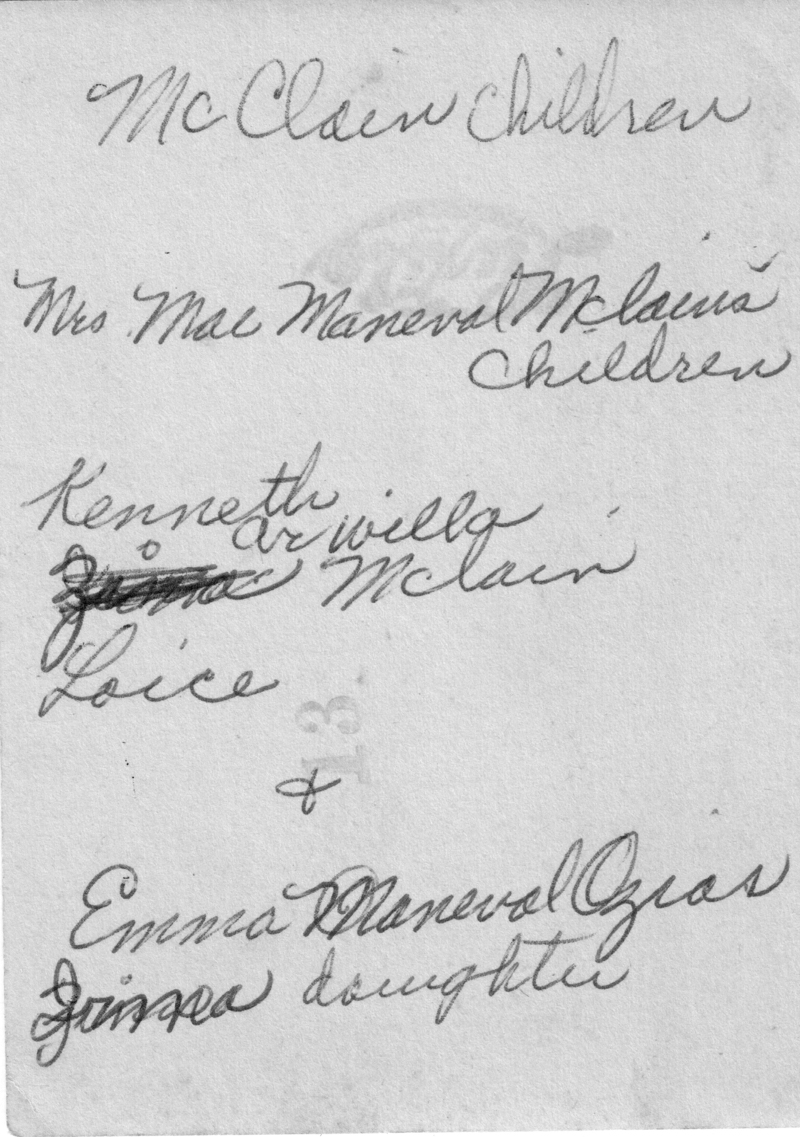 McClain Children
Mrs Mae Maneval Mclain's
Children
Kenneth
Arwilla
Mclain
Loice
&
Emma Maneval Ozias
daughter
13.